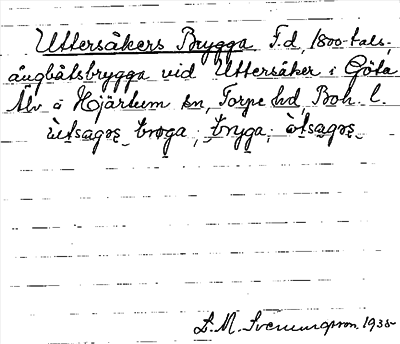 Uttersåkers Brygga F.d. 1800-tals-
ångbåtsbrygga vid Uttersåker i Göta
Älv å Hjärtum sn, Torpe hd, Boh. l.
S. M. Svenungsson 1935